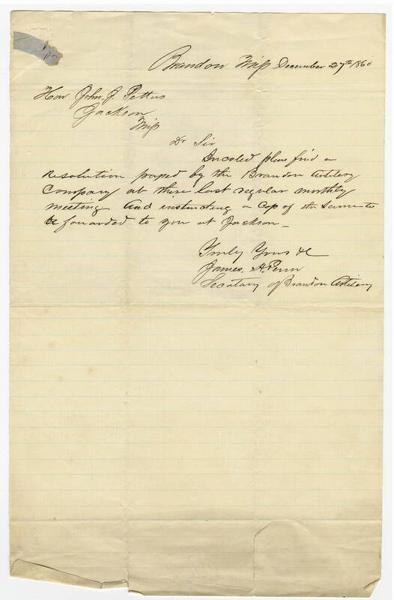 Brandon Miss December 27th 1860
Hon John J. Pettus
Jackson
Miss
Dr Sir
Encoled pleas find a
Resolution passed by the Brandon Artilery
Company at there last regular monthly
meeting And instructing a Copy of the Same to
be forwarded to you at Jackson
Truly Yours &c
James. H. Penn
Secatary of Brandon Artilery